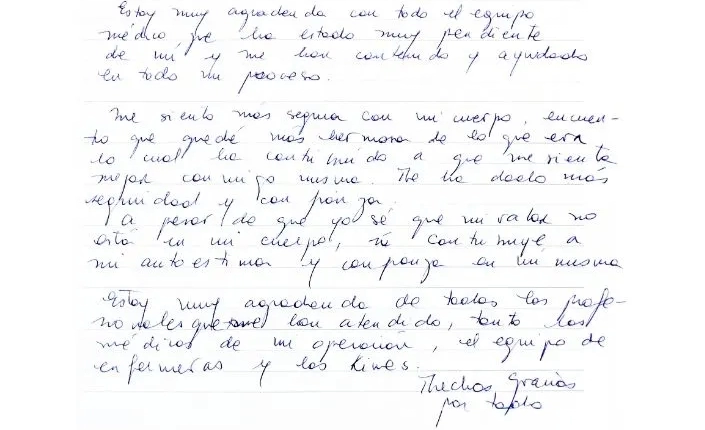 Estoy muy agradecida con todo el equipo
médico que ha estado muy pendiente
de mí y me han contenido y ayudado
en todo mi proceso.
Me siento más segura con mi cuerpo, encuen-
tro que quedé más hermosa de lo que era
lo cual ha contribuido a que me sienta
mejor conmigo misma. Me ha dado más
seguridad y confianza.
A pesar de que yo sé que mi valor no
está en mi cuerpo, sí contribuyó a
mi autoestima y confianza en mi misma
Estoy muy agradecida de todos los profe-
sionales que me han atendido, tanto los
médicos de mi operación, el equipo de
enfermeras y los kines.
Muchas Gracias
por todo